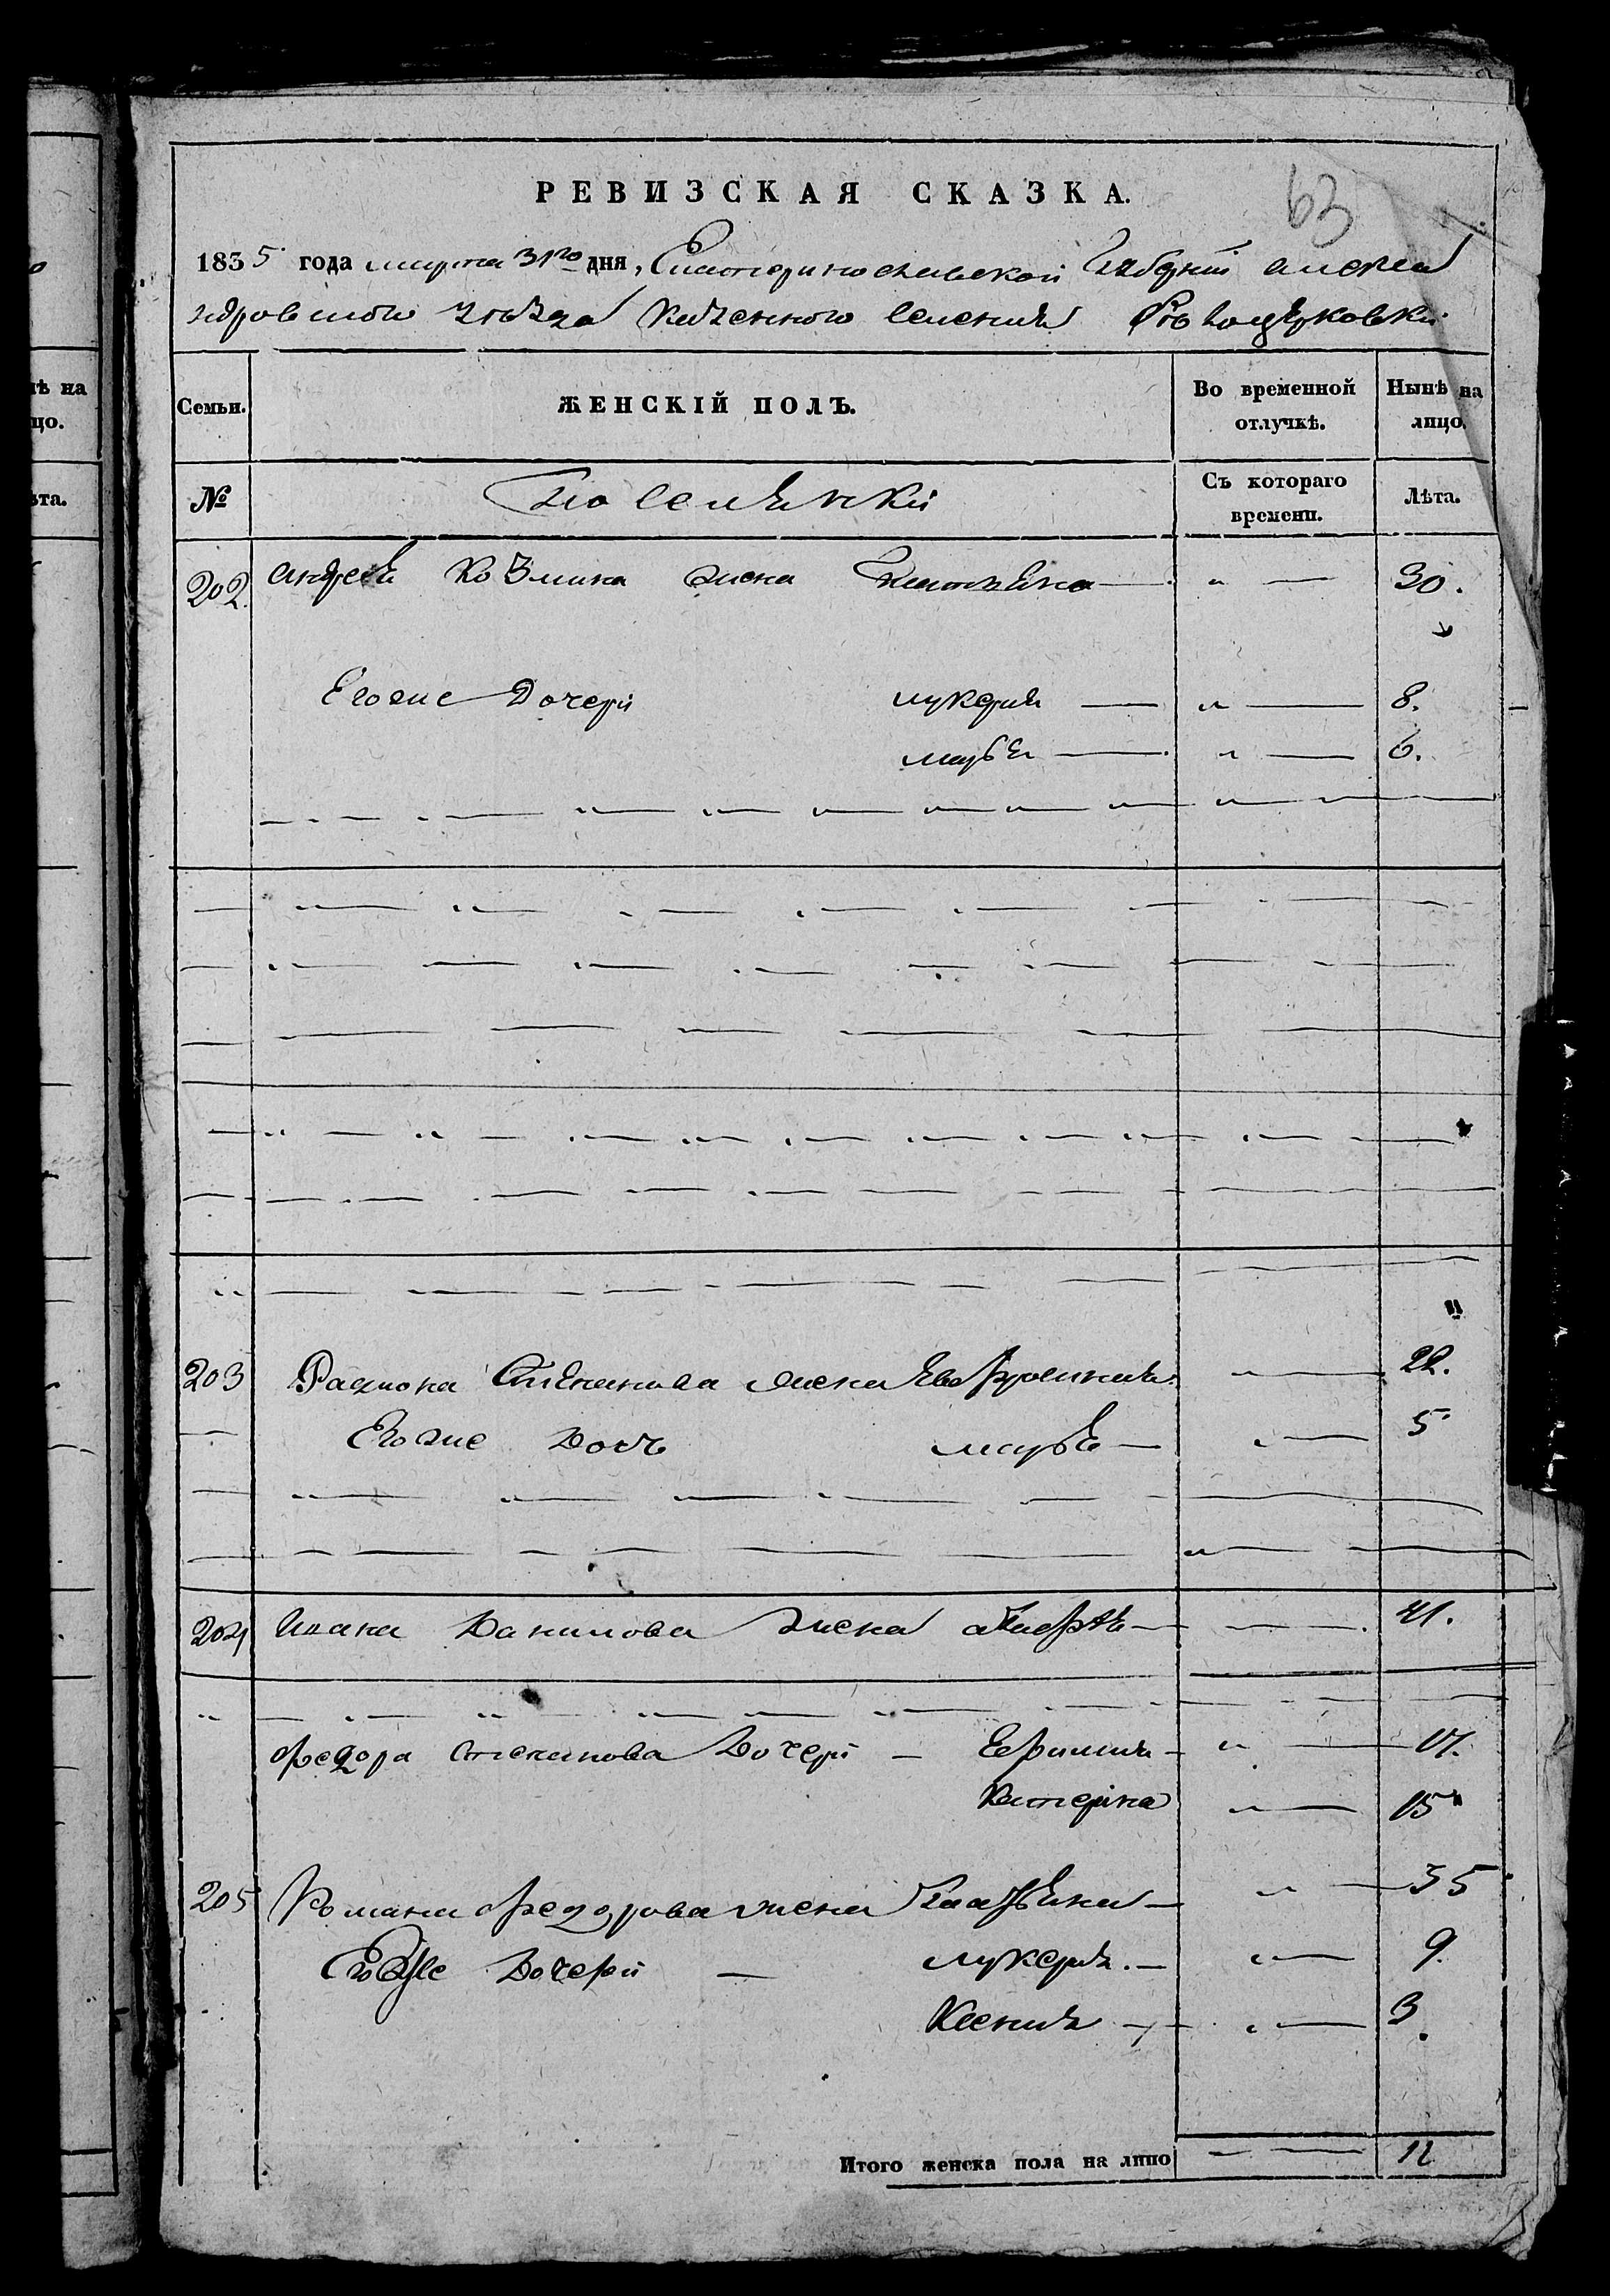 63
РЕВИЗСКАЯ СКАЗКА.
1835 года марта 31го дня, Екатеринославской Губернии Алекса
ндровского уезда Казенного селения
Семьи. ЖЕНСКІЙ ПОЛЪ. Во временной отлучкѣ. Нынѣ на лицо.
№ Поселянки Съ котораго времени. Лѣта.
202 Андрея Козмина жена 30.
Егоже Дочери лукерия 8.
мавра 6.
203 Радиона Степанова жена Евфросиния 22.
Егоже Дочь мавра 5
204 Ивана Данилова жена Марфа 41.
федора степанова Дочери Ефимия 17.
Катерина 15
205 Романа федорова жена 35
Егоже Дочери лукерия. 9.
Ксения 3.
Итого женска пола на лицо 12
ѣ на
цо.
ѣта.